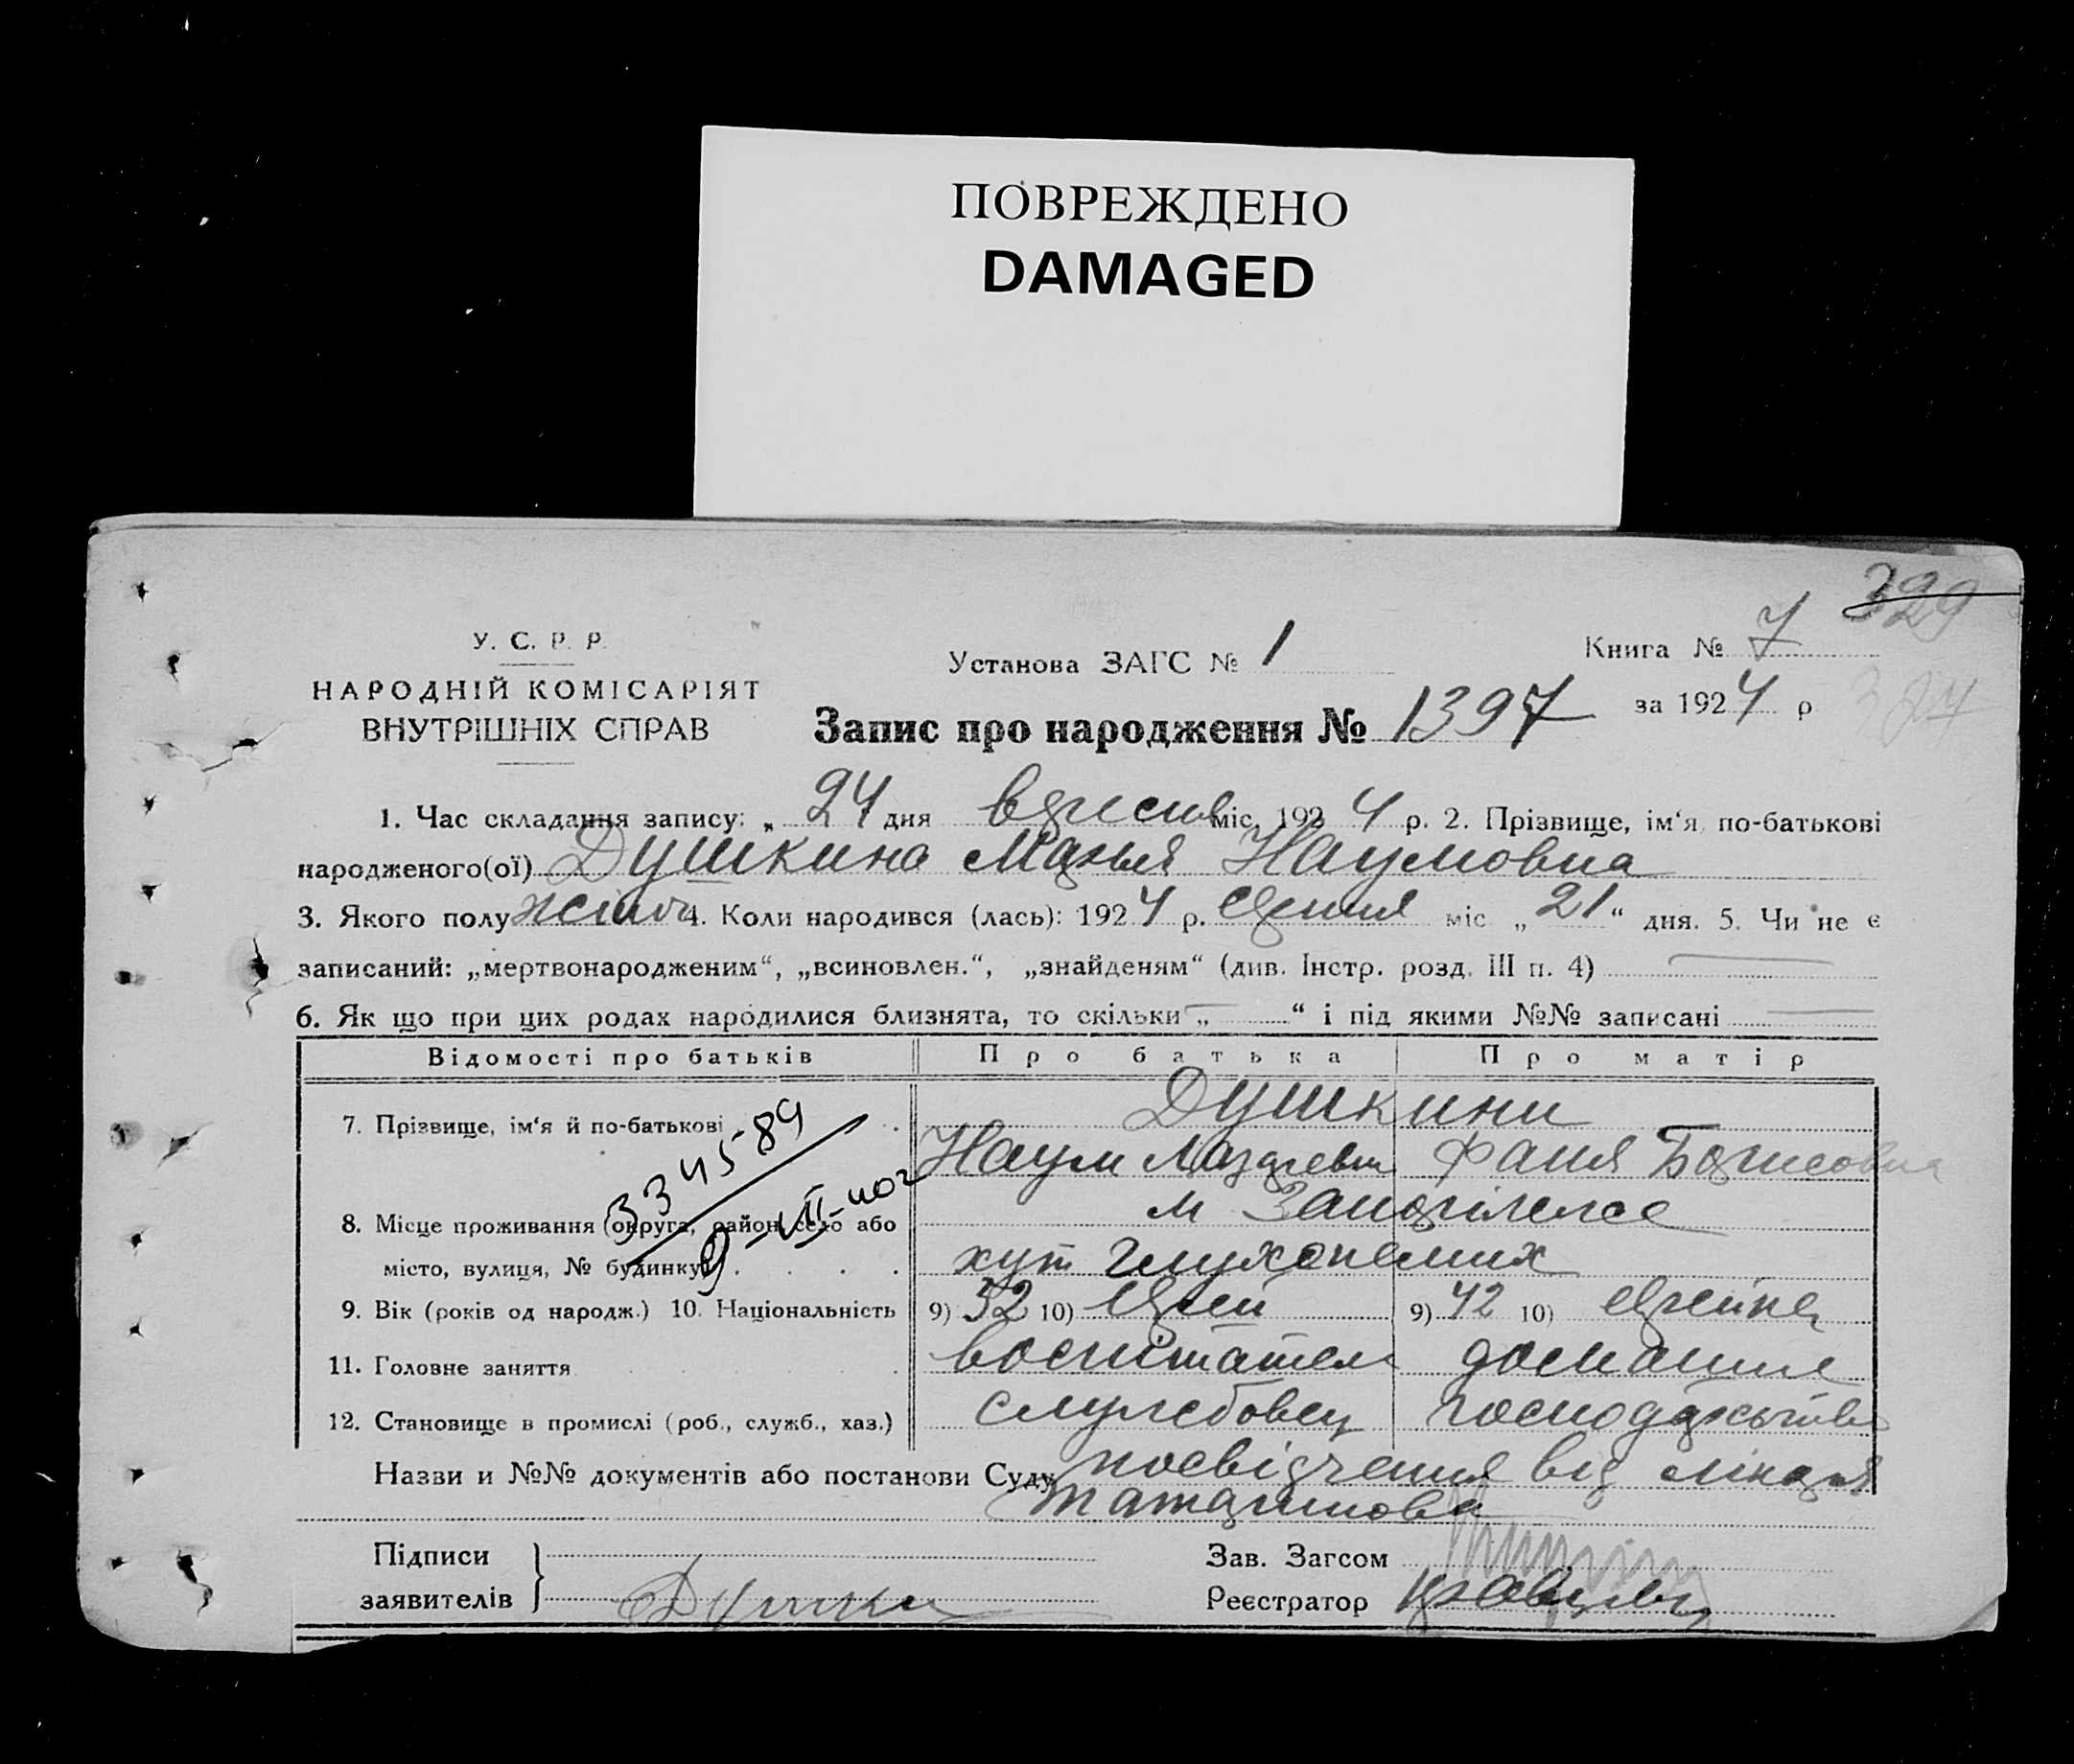 ПОВРЕЖДЕНО
DAMAGED
329
У. С. Р. Р.
НАРОДНІЙ КОМІСАРІЯТ
ВНУТРІШНІХ СПРАВ
Установа ЗАГС № 1
Книга № 7
за 1924 р
Запис про народження № 1397
1. Час складання запису: „ 24 дня вересня міс. 1924 р. 2. Прізвище, ім‘я, по-батькові
народженого(ої) Душкина Марья Наумовна
3. Якого полу жіноч 4. Коли народився (лась): 1924 р. серпня міс „ 21 “ дня. 5. Чи не є
записаний: „мертвонародженим“, „всиновлен.“, „знайденям“ (див. Інстр. розд. III п. 4)
6. Як що при цих родах народилися близнята, то скільки „ “ і під якими №№ записані
Відомості про батьків Про батька Про матір
7. Прізвище, ім‘я й по-батькові Душкини
Наум Лазаревич Фаня Борисовна
334589
9-VII-
8. Місце проживання (округа, район, село або м Запоріжжє
місто, вулиця, № будинку) хут
9. Вік (років од народж.) 10. Національність 9) 52 10) Єврей 9) 42 10) єврейка
11. Головне заняття воспітатель домашнє
12. Становище в промислі (роб., служб., хаз.) службовец господарство
Назви и №№ документів або постанови Суду посвідчення від лікаря
Підписи
заявителів
Душкин
Зав. Загсом
Реєстратор